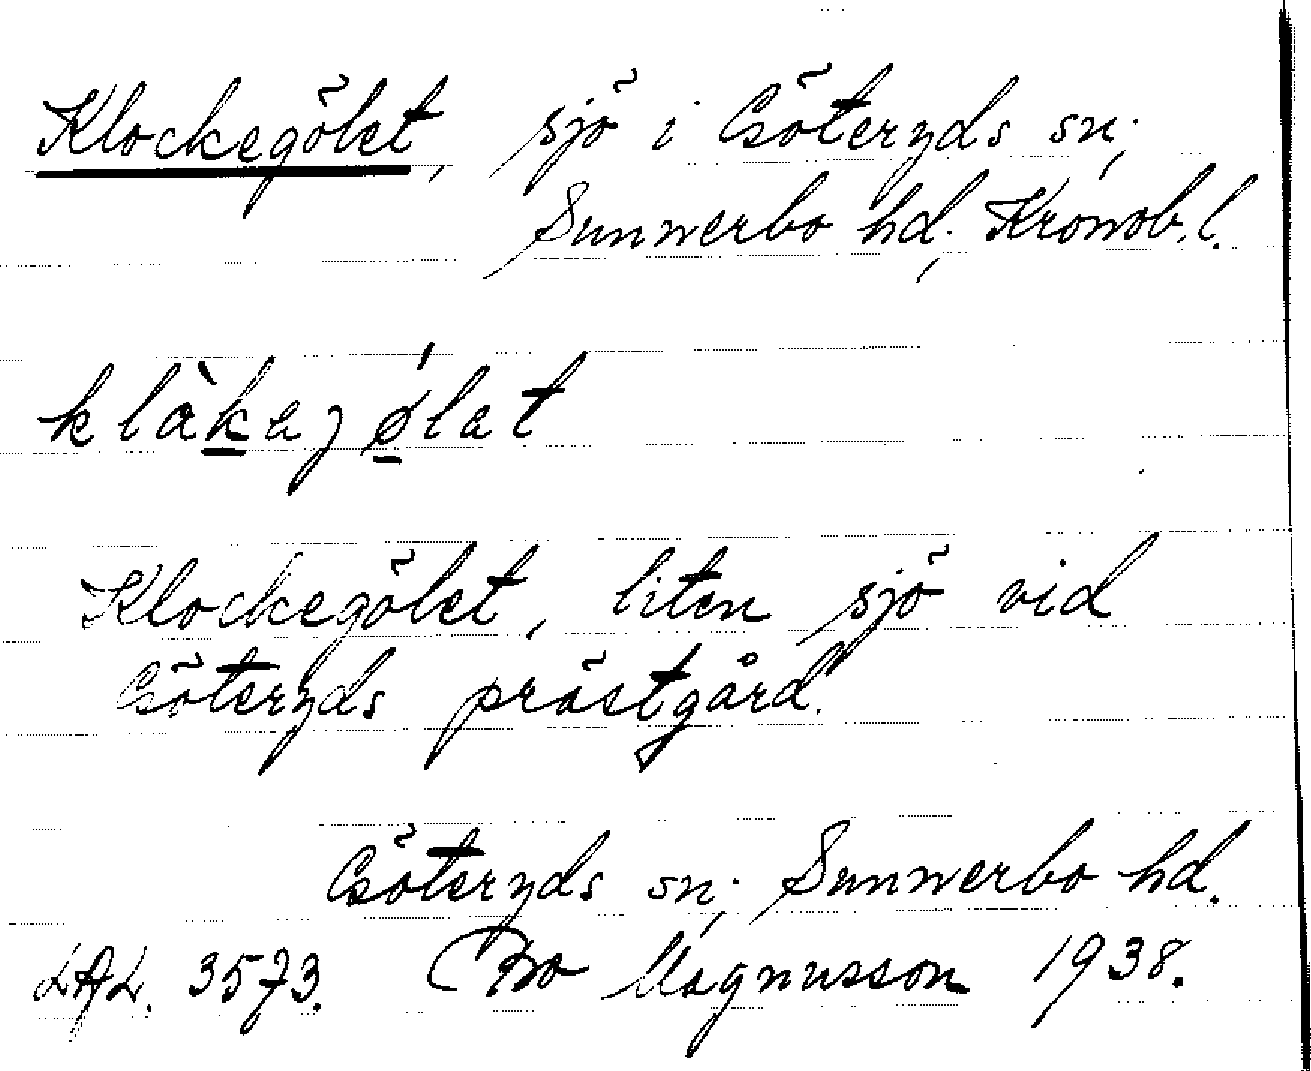 Klockegölet, sjö i Göteryds sn;
Sunnerbo hd. Kronob. l.
klàkajǿlat
Klockegölet, liten sjö vid
Göteryds prästgård.
Göteryds sn; Sunnerbo hd.
LAL. 3573. Bo Magnusson 1938.